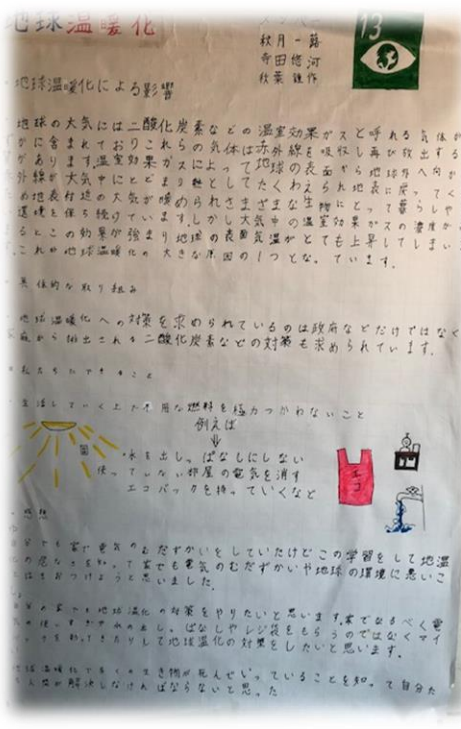 地球温暖化
13
秋月一路
寺田悠河
秋葉 作
地球温暖化による影響
地球の大気には二酸化炭素などの温室効果ガスと呼れる気体が
かに含まれておりこれらの気体は赤外線を吸収し再び放出する
があります。温室効果ガスによって地球の表面から地球外へ向か
外線が大気中にとどまり熱としてたくわえられ地表に戻ってく
め地表付近の大気が暖められさまざまな生物にとって暮らしや
環境を保ち続けています。しかし大気中の温室効果ガスの濃度が
るとこの効果が強まり地球の表面気温がとても上昇してしまい
これが地球温暖化の大きな原因の1つとなっています。
具体的な取り組み
地球温暖化への対策を求められているのは政府などだけではなく
家庭から排出される二酸化炭素などの対策も求められています。
私たちにできること
生活していく上で不用な燃料を極力つかわないこと
例えば
⇓
水を出しっぱなしにしない
使っていない部屋の電気を消す
エコバックを持っていくなど
エコ
感想
分でも家で電気のむだずかいをしていたけどこの学習をして地温
の危なさを知って家でも電気のむだずかいや地球の環境に悪いこ
はきおつけようと思いました。
分の家でも地球温化の対策をやりたいと思います。家でなるべく電
の使いすぎや水の出しっぱなしやレジ袋をもらうのではなくマイ
ックをもってきたりして地球温化の対策をしたいと思います。
地球温暖化で多くの生き物が死んでいっていることを知って自分た
人間が解決しなければならないと思った